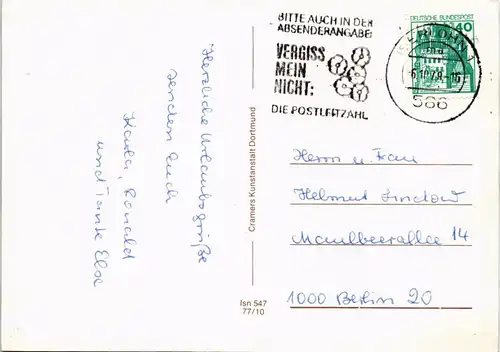 Herzliche Urlaubsgrüße
senden Euch
Karla, Ronald
und Tante Else
Cramers Kunstanstalt Dortmund
Isn 547
77/10
BITTE AUCH IN DER
ABSENDERANGABE:
VERGISS
MEIN
NICHT:
DIE POSTLEITZAHL
ISERLOHN
-6.10.78-16
586
DEUTSCHE BUNDESPOST
40
Herrn u. Frau
Helmut Lindow
Maulbeerallee 14
1000 Berlin 20